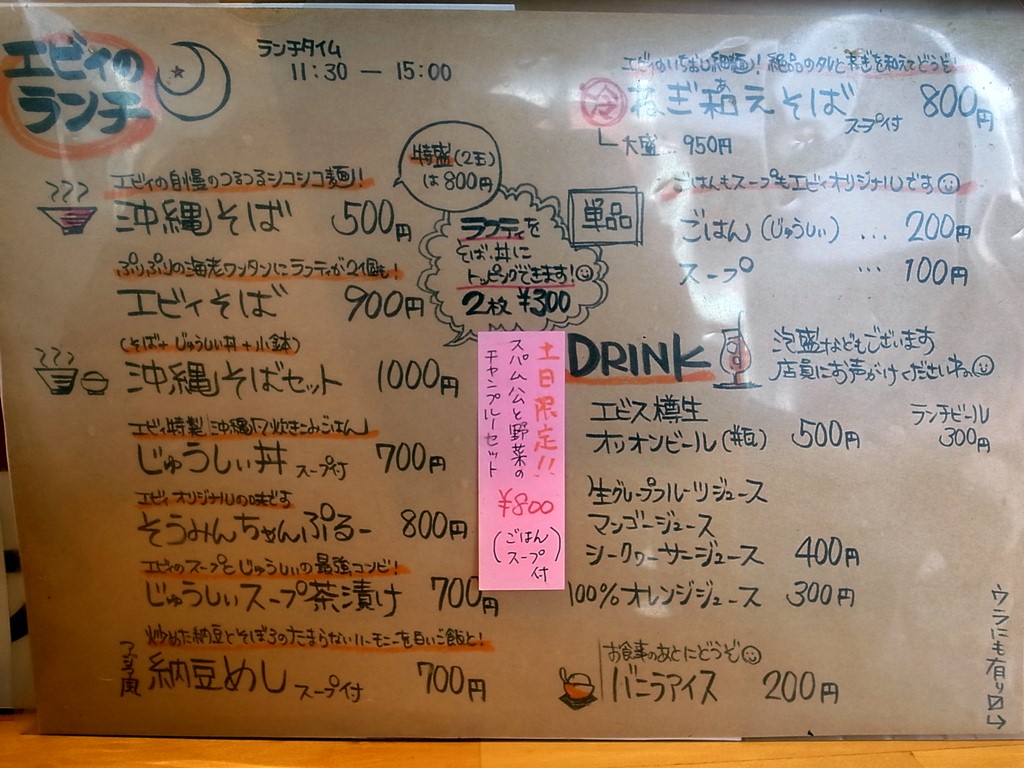 エビィの
ランチ
ランチタイム
11:30 — 15:00
エビィの自慢のつるつるシコシコ麺!
沖縄そば 500円
特盛(2玉)
は800円
ぷりぷりの海老ワンタンにラフティが2個も!
エビィそば 900円
ラフティを
そば・丼に
トッピングできます!
2枚 ¥300
(そば+じゅうしぃ丼+小鉢)
沖縄そばセット 1000円
エビィ特製「沖縄風炊きこみごはん」
じゅうしぃ丼 スープ付 700円
エビィオリジナルの味です
そうみんちゃんぷるー 800円
エビィのスープとじゅうしぃの最強コンビ!
じゅうしぃスープ茶漬け 700円
炒めた納豆とそぼろのたまらないハーモニーを白いご飯と!
納豆めし スープ付 700円
土日限定!!
スパム公と野菜の
チャンプルーセット
¥800
(ごはん
スープ
付)
エビィのいちおし細麺!絶品のタレとねぎを和えてどうぞ!
冷 ねぎ和えそば スープ付 800円
あ
大盛… 950円
単品
ごはんもスープもエビィオリジナルです
ごはん(じゅうしぃ) … 200円
スープ … 100円
DRINK
泡盛などもございます
店員にお声がけくださいネ。
エビス樽生
オリオンビール(瓶) 500円
ランチビール
300円
生グレープフルーツジュース
マンゴージュース
シークワーサージュース 400円
100%オレンジジュース 300円
お食事のあとにどうぞ
バニラアイス 200円
ウラにも有り